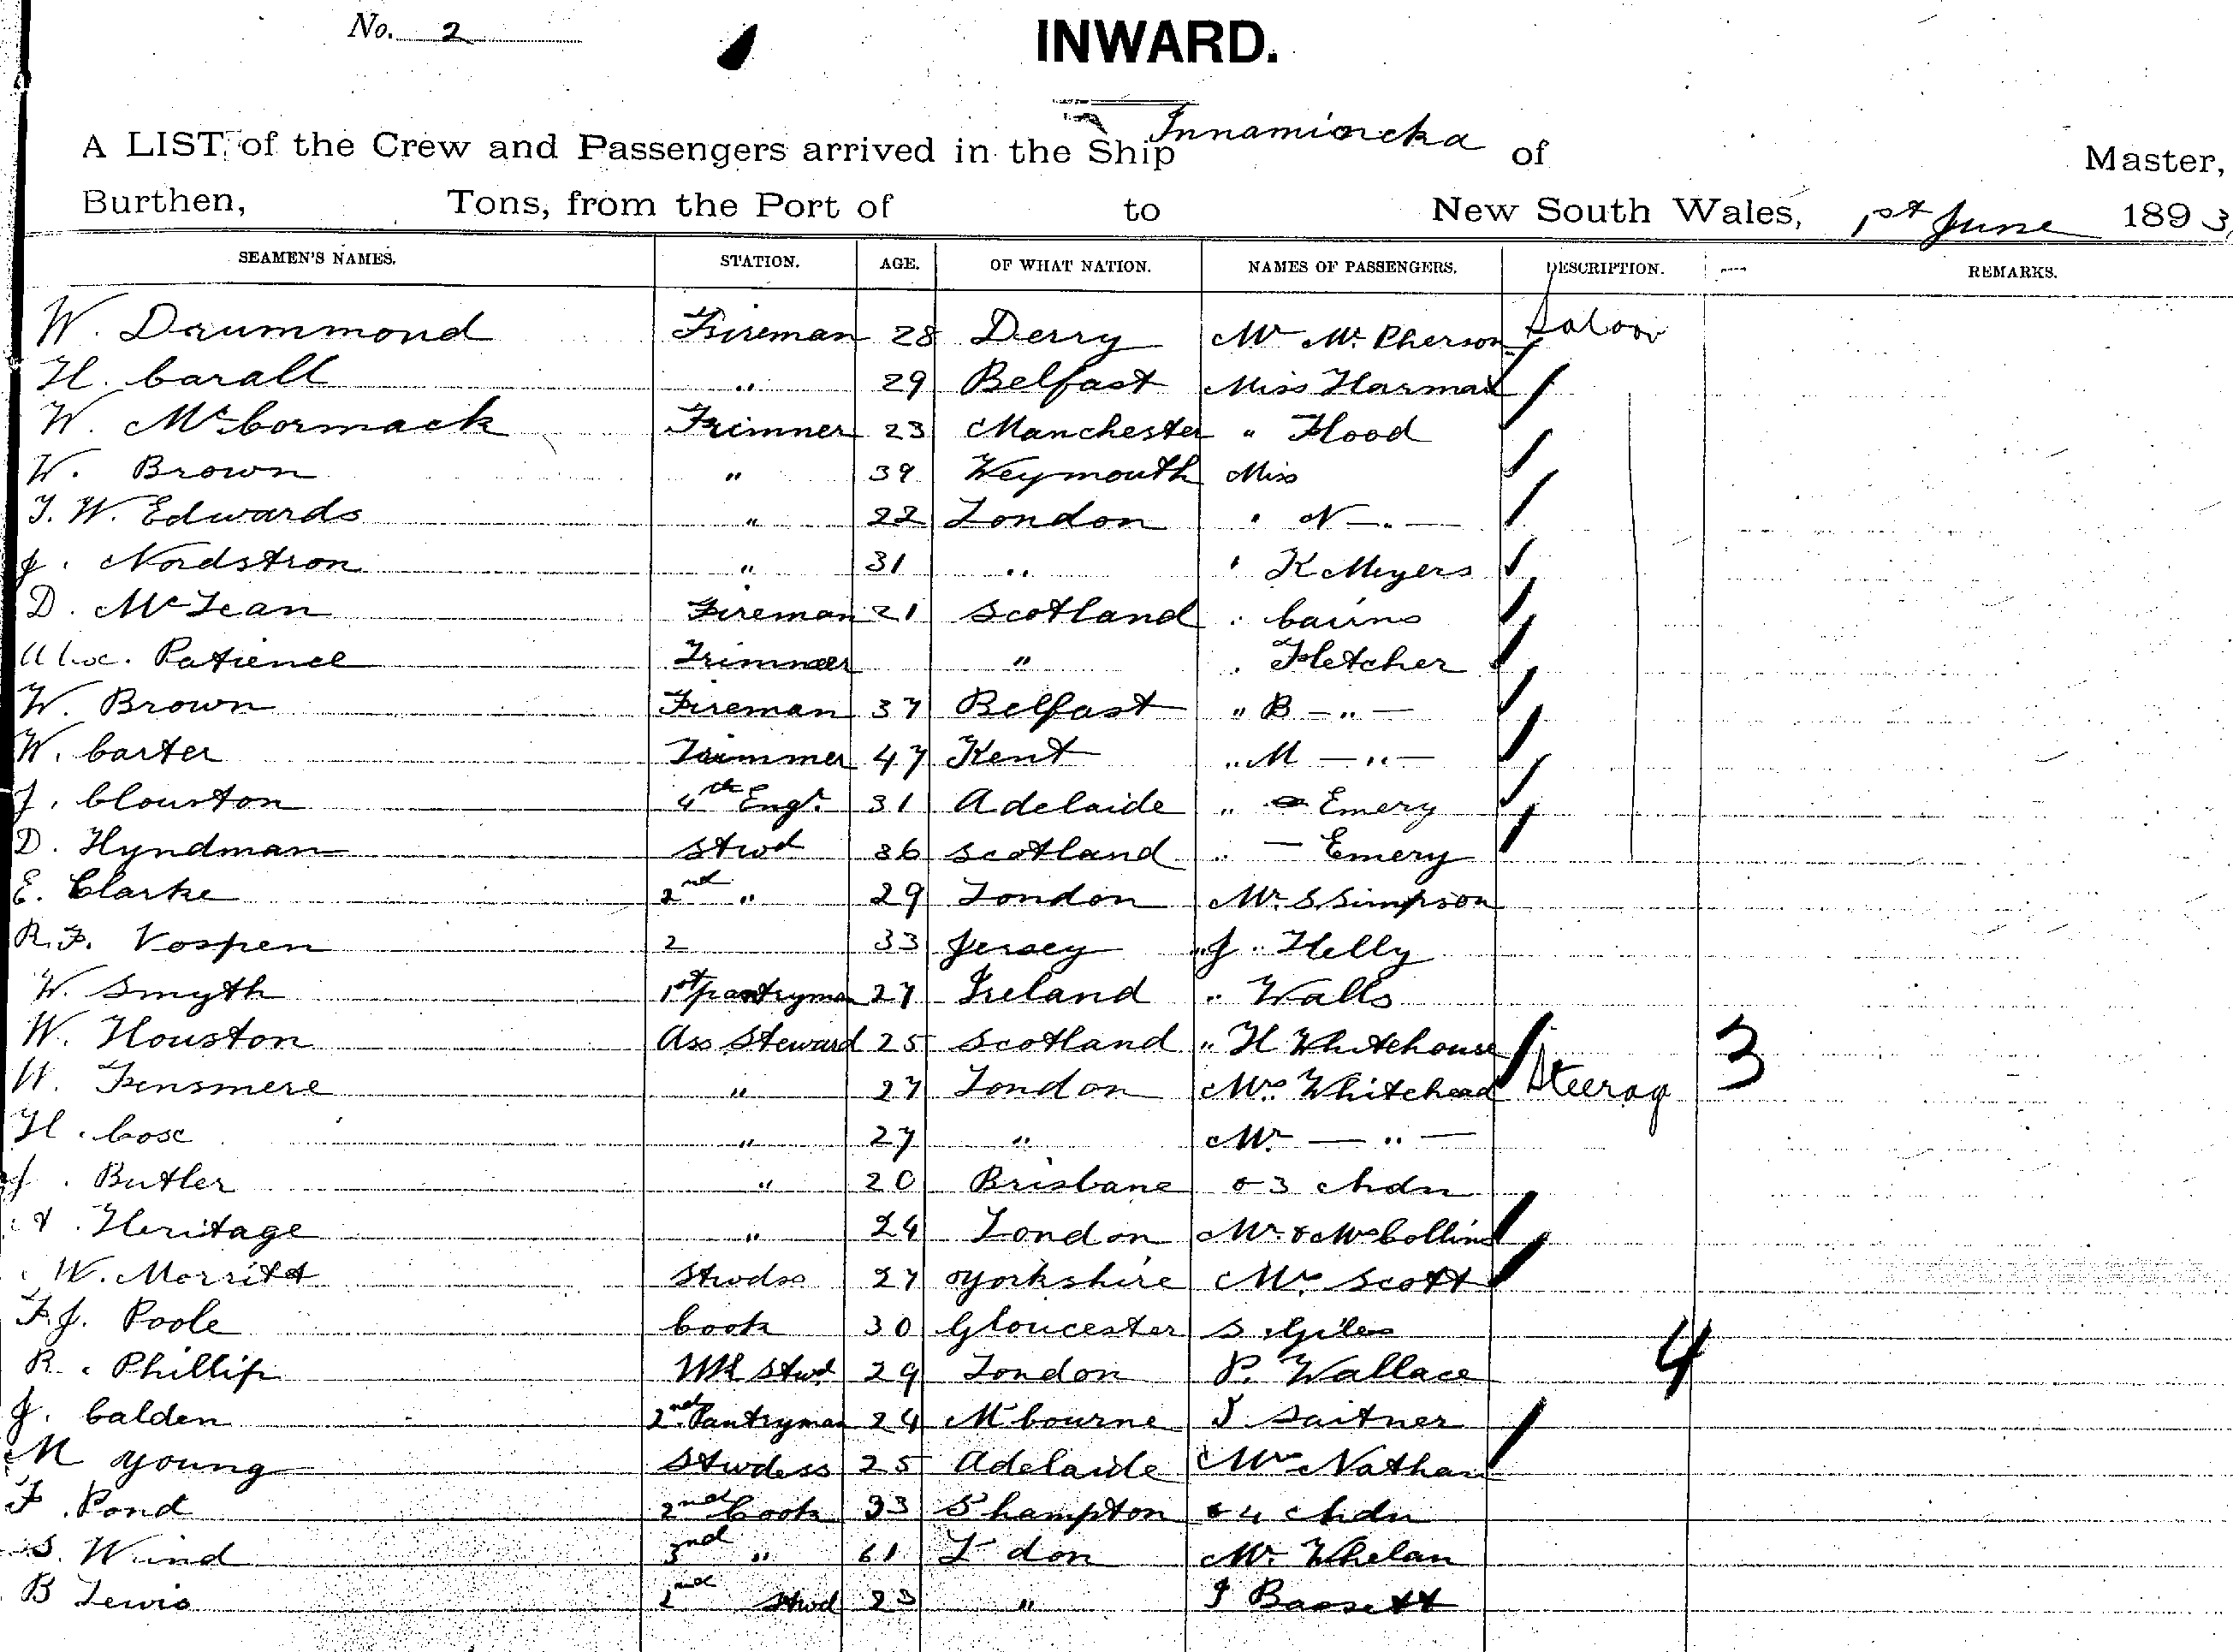 No. 2
INWARD.
A LIST of the Crew and Passengers arrived in the Ship Innamincka of Master,
Burthen, Tons, from the Port of to New South Wales, 1st June 1893,
SEAMEN'S NAMES. STATION. AGE. OF WHAT NATION. NAMES OF PASSENGERS. DESCRIPTION. REMARKS.
W. Drummond Fireman 28 Derry Mr McPherson Saloon
H. Carall " 29 Belfast Miss Harman
W. McCormack Trimner 23 Manchester " Flood
W. Brown " 39 Weymouth Miss
T. W. Edwards " 22 London " N — " —
J. Nordstron " 31 " " K Meyers
D. McLean Fireman 21 Scotland " Cairns
Patience Trimmer " " Fletcher
W. Brown Fireman 37 Belfast " B — " —
W. Carter Trimmer 47 Kent " M — " —
J. Clouston 4th Engr. 31 Adelaide " Emery
D. Hyndman Stwd 36 Scotland " — Emery
E. Clarke 2nd " 29 London Mr S. Simpson
R. F. Vospen 2 33 Jersey " J. Helly
W. Smyth 1st pantryman 27 Ireland " Walls
W. Houston Ass Steward 25 Scotland " H Whitehouse 3
W. Fensmere " 27 London Mrs Whitehead Steerag
H. Cose " 27 " Mr — " —
J. Butler " 20 Brisbane & 3 chdn
Heritage " 24 London Mr & Mrs Collins
W. Morritt Stwdss 27 Yorkshire Mrs Scott
F. J. Poole Cook 30 Gloucester S. Giles
R. Phillip Stwd 29 London P. Wallace 4
J. Calden 2nd Pantryman 24 Mbourne J. Saitner
M Young Stwdess 25 Adelaide Mrs Nathan
F. Pond 2nd Cook 33 S'hampton & 4 chdn
S. Wind 3nd " 61 L'don Mr. Whelan
B Lewis 2nd Stwd 23 " J Bassett